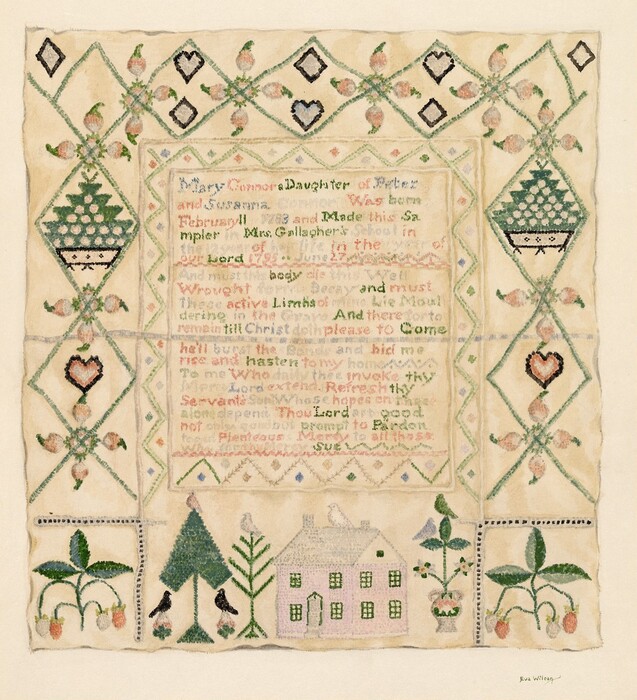 Mary Connor a Daughter of Peter
and Susanna Connor Was born
February 11 1783 and Made this Sa
mpler in Mrs. Gallagher's School in
of life in the year of
our Lord 1795 June 27
And must this body die this Well
Wrought Decay and must
these active Limbs of mine Lie Moul
dering in the Grave And there for to
remain till Christ doth please to Come
he'll burst the Bands and bid me
rise and hasten to my home
To me Who daily thee invoke thy
Lord extend Refresh thy
Servants Soul Whose hopes on thee
alone depend Thou Lord art good
not only good but prompt to Pardon
Plenteous Mercy to all those
Sue